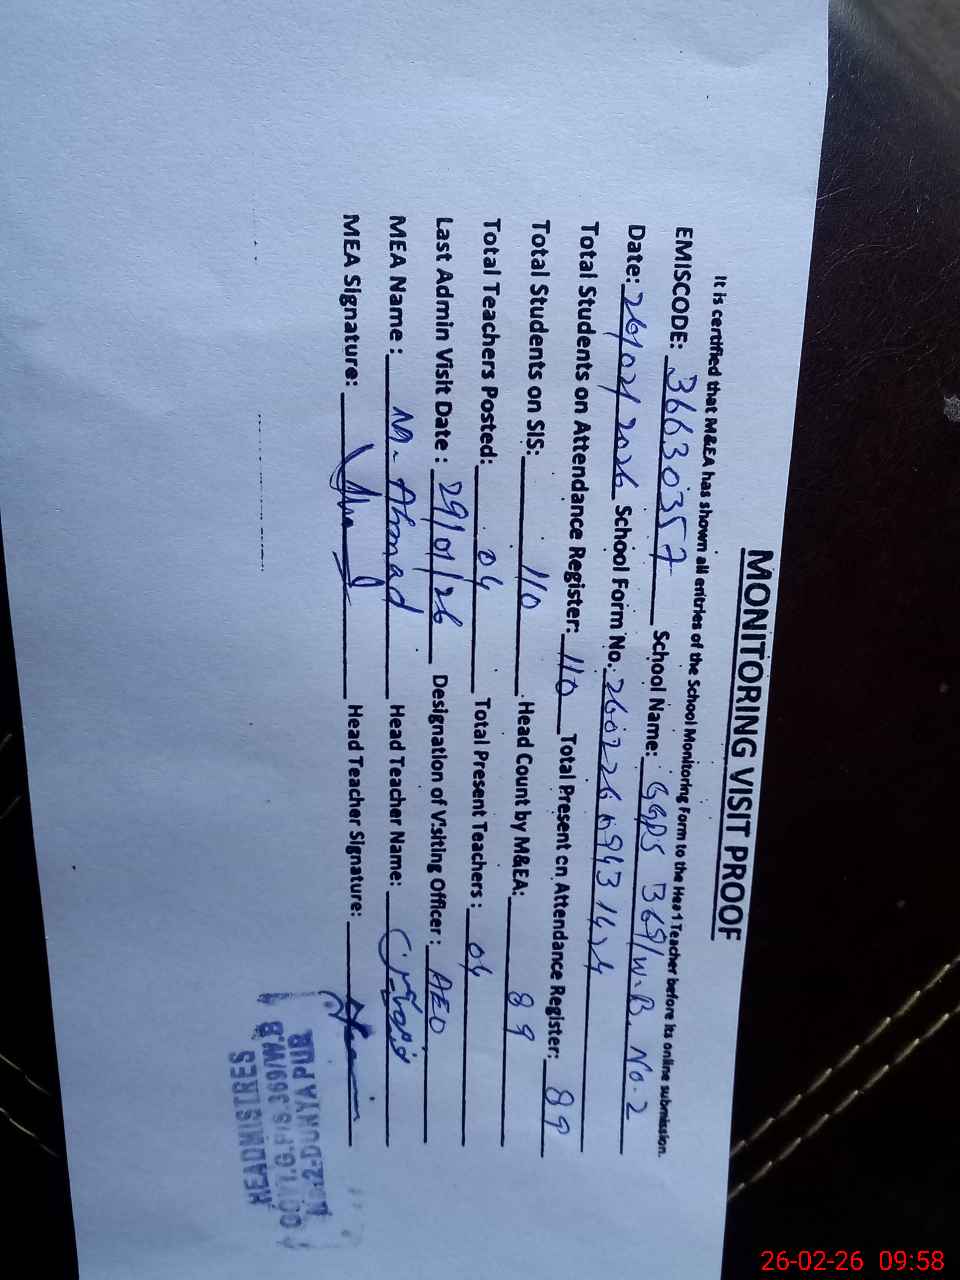 MONITORING VISIT PROOF
It is certified that M&EA has shown all entries of the School Monitoring Form to the Head Teacher before its online submission.
EMISCODE: 36630357 School Name: GGPS 369/W.B. No.2
Date: 26/02/2026 School Form No.
Total Students on Attendance Register: 110 Total Present on Attendance Register: 89
Total Students on SIS: 110 Head Count by M&EA: 89
Total Teachers Posted: 04 Total Present Teachers: 04
Last Admin Visit Date: 29/01/26 Designation of Visiting Officer: AEO
MEA Name: M. Ahmad Head Teacher Name:
MEA Signature: Head Teacher Signature:
HEADMISTRES
GOVT.G.P/S.369/W.B
No.2-DUNYAPUR
26-02-26 09:58